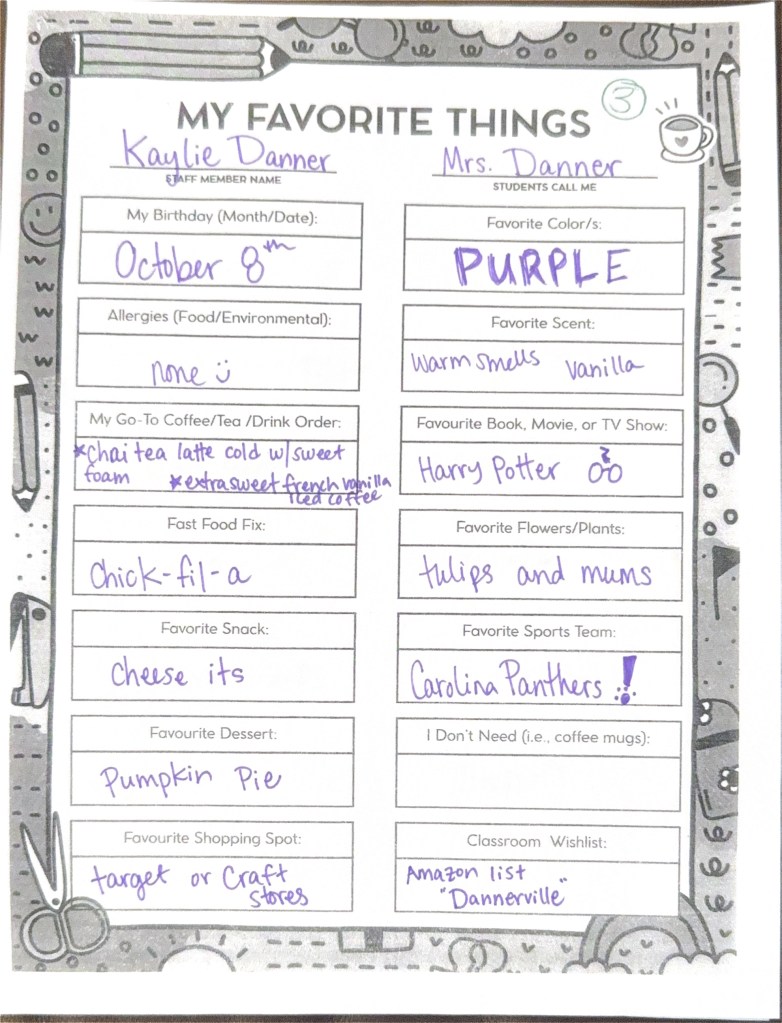 3
MY FAVORITE THINGS
Kaylie Danner
STAFF MEMBER NAME
Mrs. Danner
STUDENTS CALL ME
My Birthday (Month/Date):
October 8th
Favorite Color/s:
PURPLE
Allergies (Food/Environmental):
none
Favorite Scent:
warm smells vanilla
My Go-To Coffee/Tea /Drink Order:
*chai tea latte cold w/ sweet
foam *extra sweet french vanilla
iced coffee
Favourite Book, Movie, or TV Show:
Harry Potter
Fast Food Fix:
Chick-fil-a
Favorite Flowers/Plants:
tulips and mums
Favorite Snack:
cheese its
Favorite Sports Team:
Carolina Panthers !
Favourite Dessert:
Pumpkin Pie
I Don't Need (i.e., coffee mugs):
Favourite Shopping Spot:
target or craft
stores
Classroom Wishlist:
Amazon list
"Dannerville"